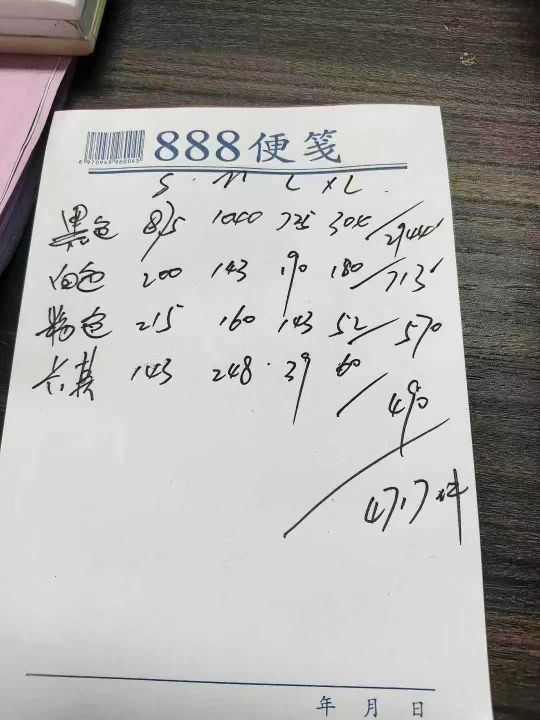 888便笺
S M L XL
黑色 875 1040 725 304 / 2944
白色 200 143 190 180 / 713
粉色 215 160 143 52 / 570
卡其 143 248 39 60 / 490
/ 4717件
年 月 日